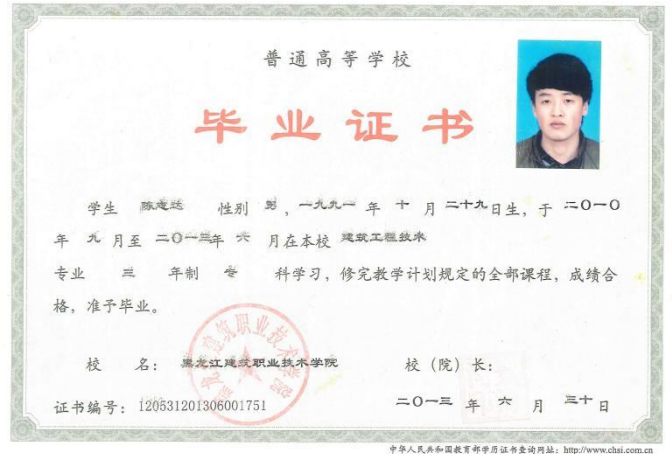 普通高等学校
毕业证书
学生 陈志达 性别 男 ，一九九一 年 十 月 二十九 日生，于 二〇一〇
年 九 月至 二〇一三 年 六 月在本校 建筑工程技术
专业 三 年制 专 科学习，修完教学计划规定的全部课程，成绩合
格，准予毕业。
校 名： 黑龙江建筑职业技术学院 校（院）长：
证书编号： 120531201306001751 二〇一三 年 六 月 三十 日
中华人民共和国教育部学历证书查询网址：http://www.chsi.com.cn